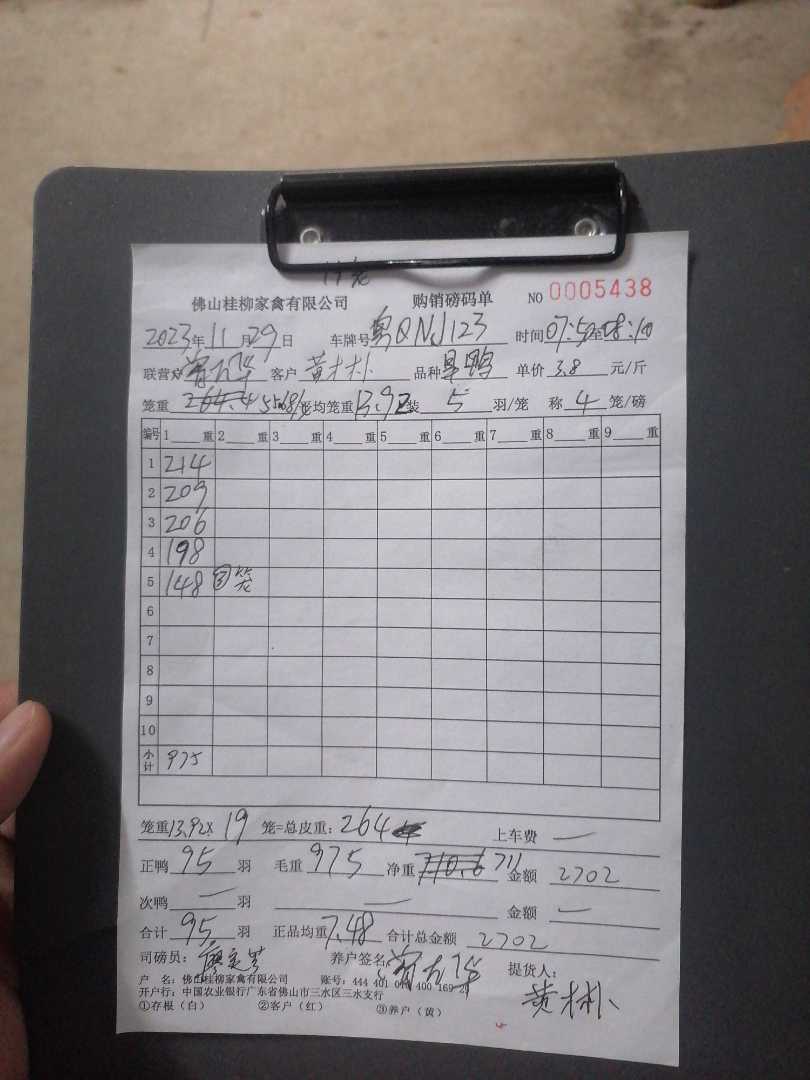 佛山桂柳家禽有限公司 购销磅码单 NO 0005438
2023年11月29日 车牌号粤QNJ123 时间07:50至08:10
联营户 客户 黄木朴 品种 鸭 单价 3.8 元/斤
笼重 平均笼重13.92装 5 羽/笼 称 4 笼/磅
编号 1 重 2 重 3 重 4 重 5 重 6 重 7 重 8 重 9 重
1 214
2 209
3 206
4 198
5 148 ③笼
6
7
8
9
10
小计 975
笼重13.92× 19 笼=总皮重：264 上车费 —
正鸭 95 羽 毛重 975 净重 710.6 711 金额 2702
次鸭 — 羽 — 金额 —
合计 95 羽 正品均重 7.48 合计总金额 2702
司磅员： 养户签名： 提货人：
户 名：佛山桂柳家禽有限公司 账号：444 401 400 169
开户行：中国农业银行广东省佛山市三水区三水支行
①存根（白） ②客户（红） ③养户（黄）